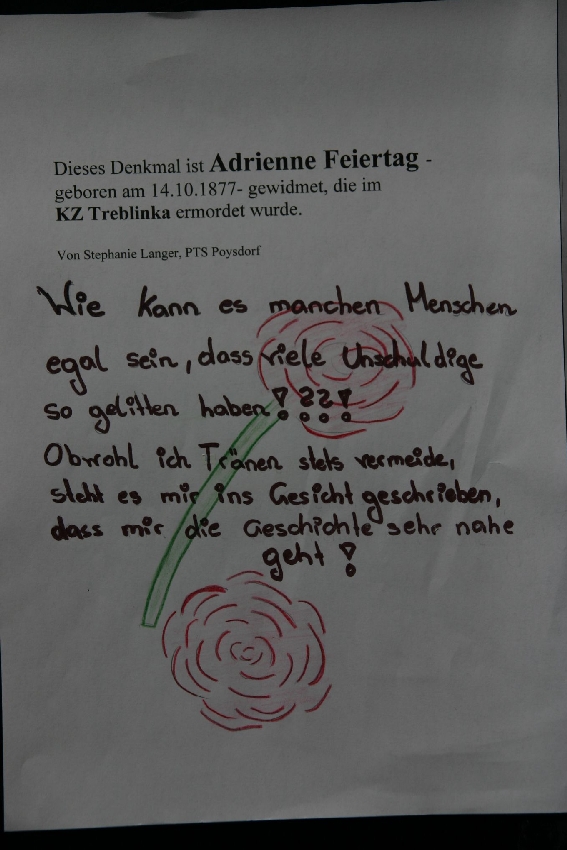 Dieses Denkmal ist Adrienne Feiertag -
geboren am 14.10.1877- gewidmet, die im
KZ Treblinka ermordet wurde.
Von Stephanie Langer, PTS Poysdorf
Wie kann es manchen Menschen
egal sein, dass viele Unschuldige
so gelitten haben!??!
Obwohl ich Tränen stets vermeide,
steht es mir ins Gesicht geschrieben,
dass mir die Geschichte sehr nahe
geht!